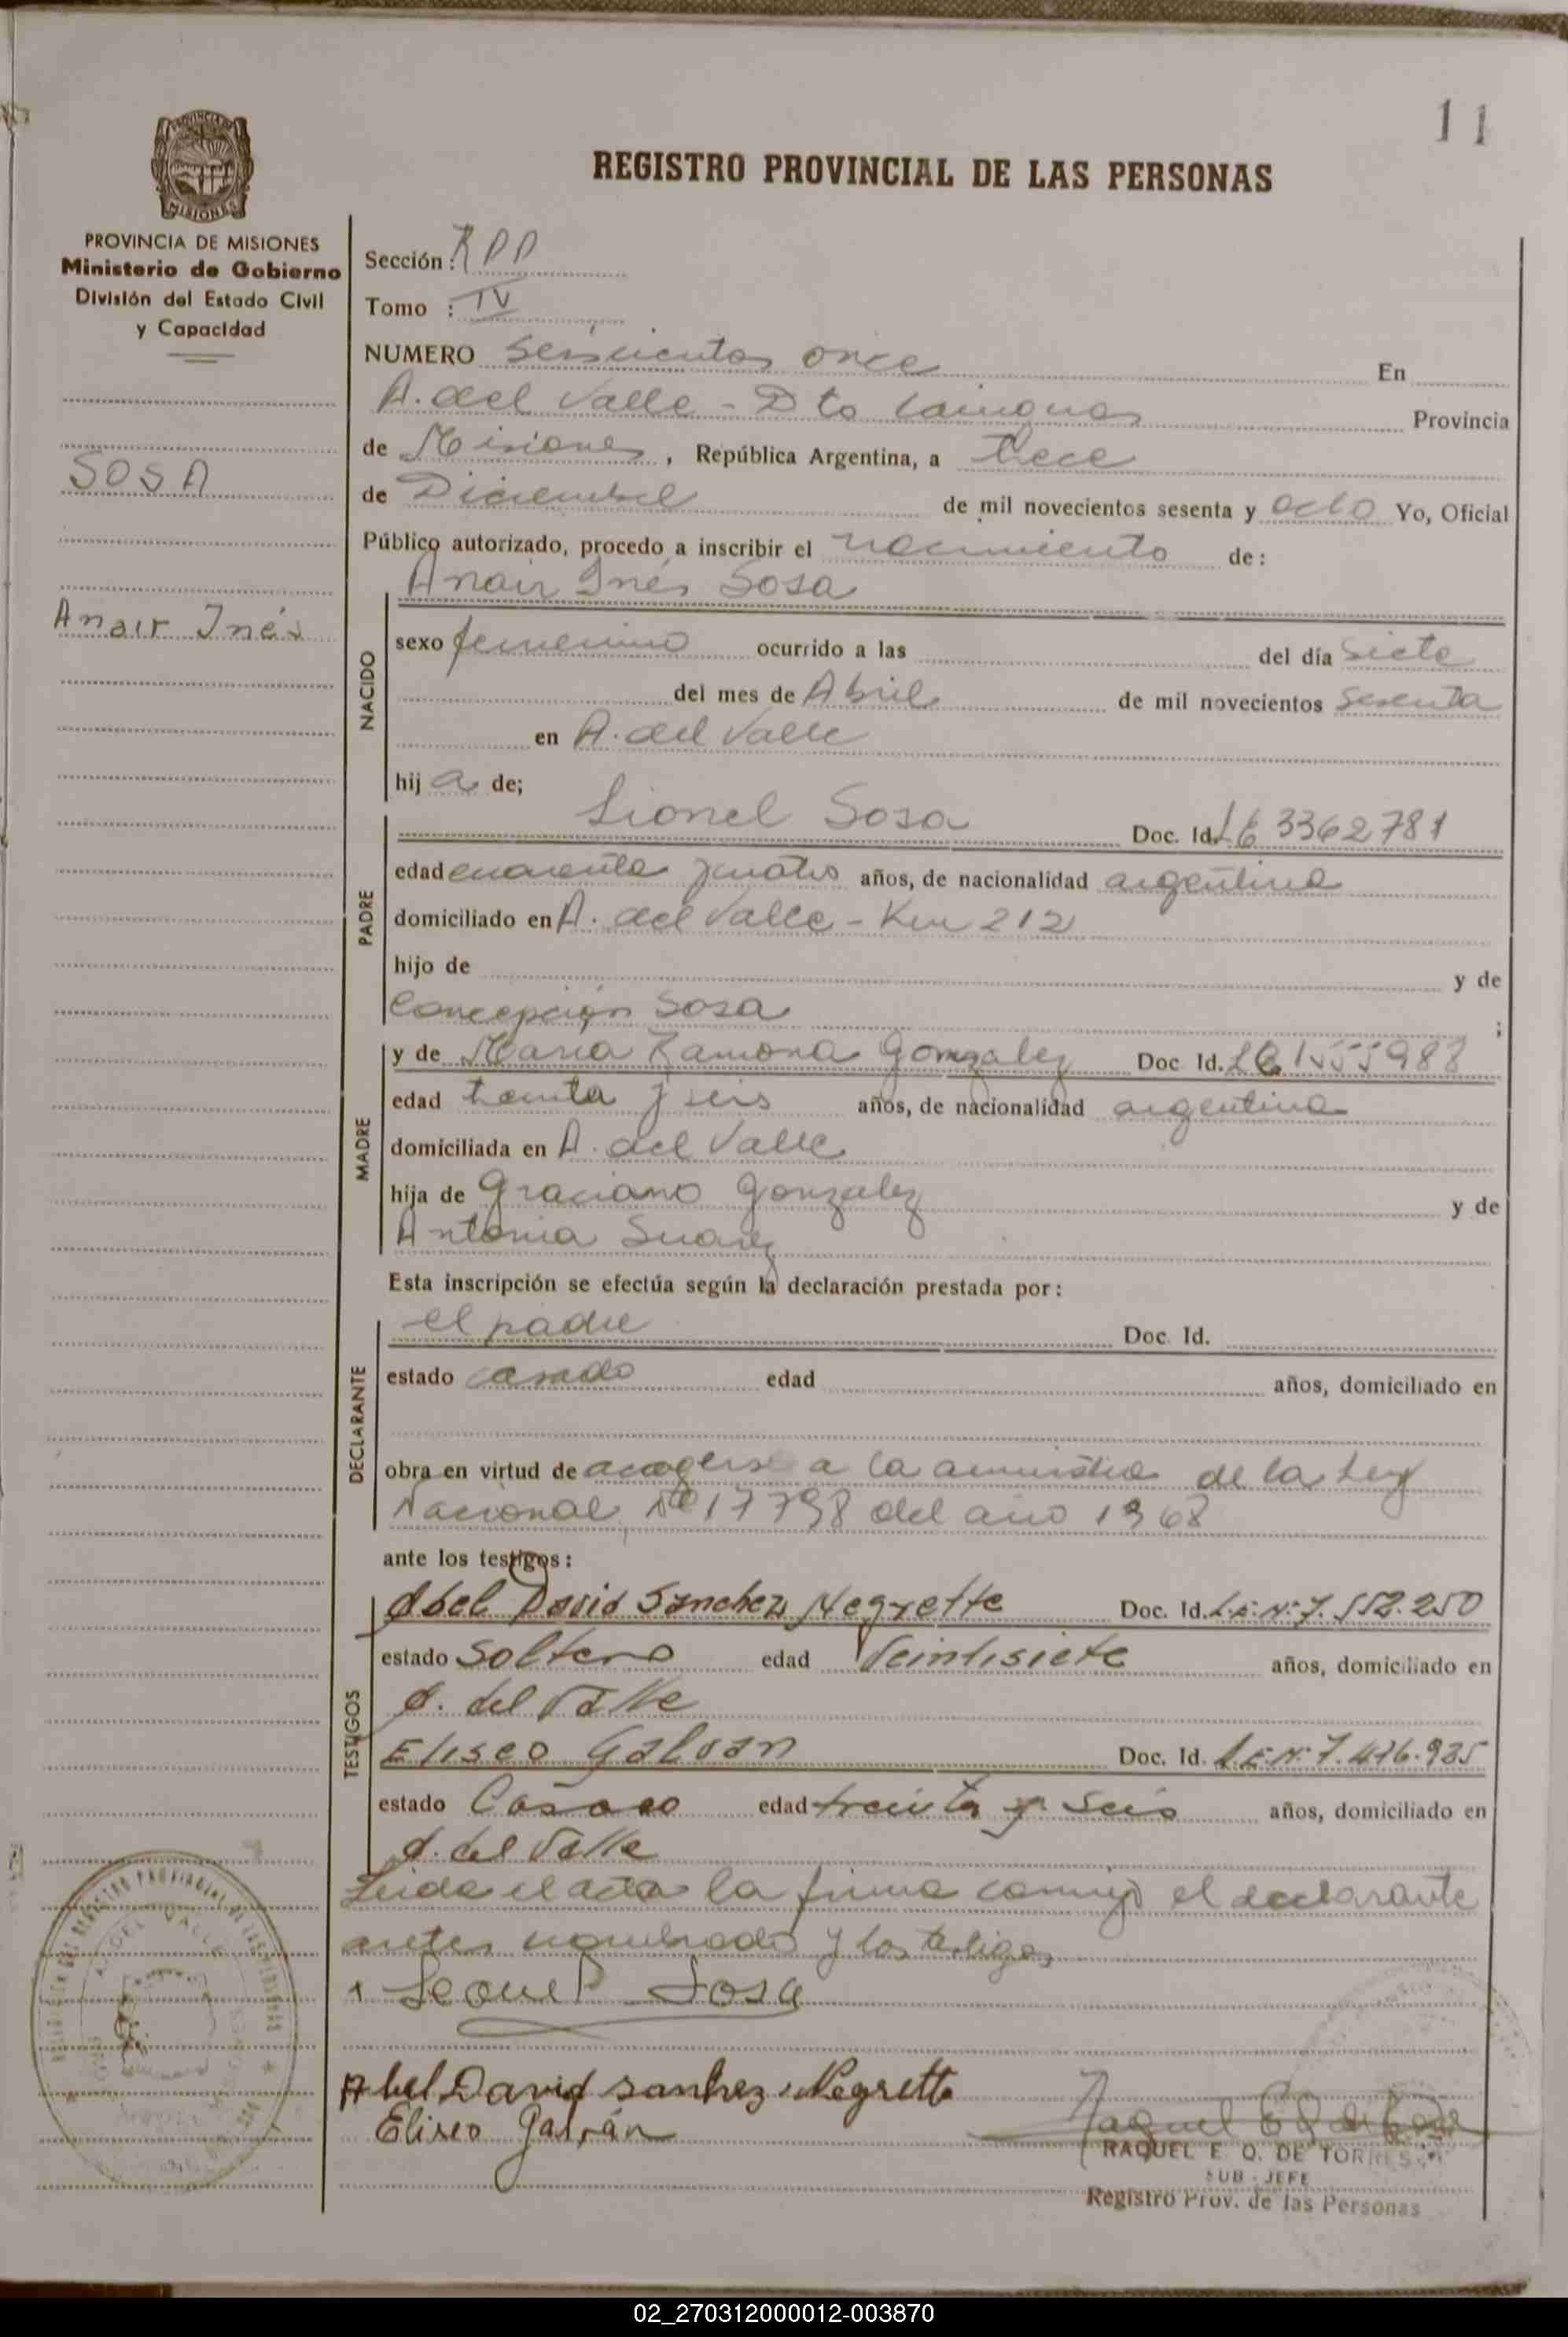 11
PROVINCIA DE
MISIONES
REGISTRO PROVINCIAL DE LAS PERSONAS
PROVINCIA DE MISIONES
Ministerio de Gobierno
División del Estado Civil
y Capacidad
SOSA
Anair Inés
Sección: RPP
Tomo : IV
NUMERO Seiscientos once En
A. del Valle - Dto Cainguas Provincia
de Misiones, República Argentina, a trece
de Diciembre de mil novecientos sesenta y ocho Yo, Oficial
Público autorizado, procedo a inscribir el nacimiento de:
Anair Inés Sosa
NACIDO
sexo femenino ocurrido a las del día siete
del mes de Abril de mil novecientos sesenta
en A. del Valle
hij a de;
PADRE
Lionel Sosa Doc. Id. LE 3362781
edad cuarenta y cuatro años, de nacionalidad argentina
domiciliado en A. del Valle - Km 212
hijo de y de
Concepción Sosa ;
MADRE
y de Maria Ramona Gonzalez Doc Id.
edad treinta y seis años, de nacionalidad argentina
domiciliada en A. del Valle
hija de Graciano Gonzalez y de
Antonia Suarez
Esta inscripción se efectúa según la declaración prestada por:
DECLARANTE
el padre Doc. Id.
estado casado edad años, domiciliado en
obra en virtud de acogerse a la amnistia de la Ley
Nacional Nº 17798 del año 1968
ante los testigos:
TESTIGOS
Abel David Sanchez Negrette Doc. Id. L.E.Nº 7.552.250
estado Soltero edad Veintisiete años, domiciliado en
A. del Valle
Eliseo Galván Doc. Id. L.E.Nº 7.476.935
estado Casado edad treinta y seis años, domiciliado en
A. del Valle
Leida el acta la firma conmigo el declarante
antes nombrado y los testigos
Leonel Sosa
Abel David Sanhez Negrette
Eliseo Galván
RAQUEL E. O. DE TORRES
SUB - JEFE
Registro Prov. de las Personas
02_270312000012-003870